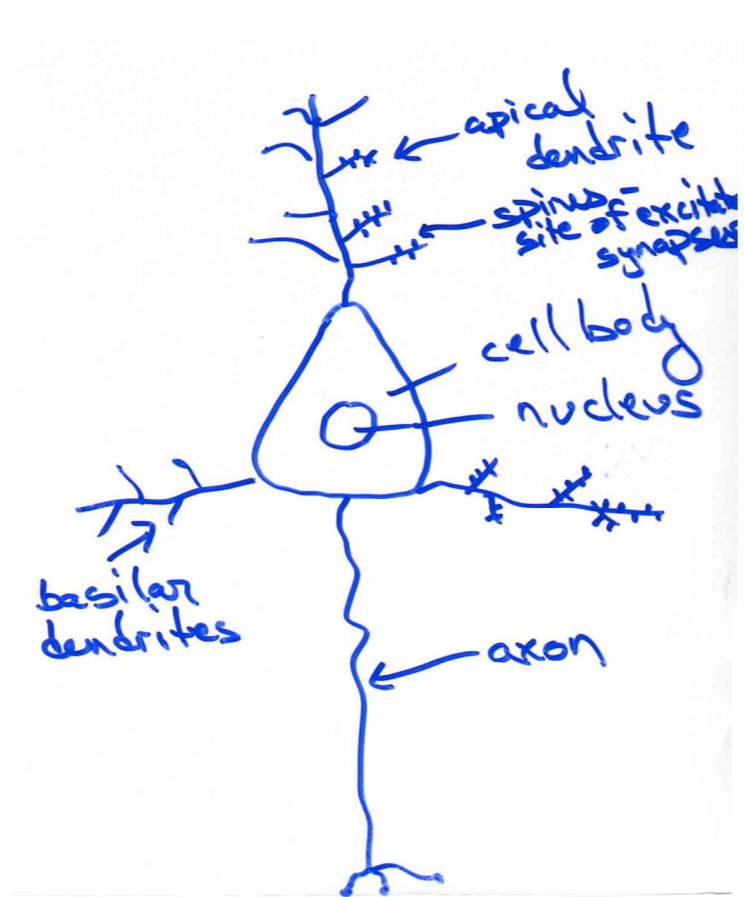 apical
dendrite
spines -
site of excitat
synapses
cell body
nucleus
basilar
dendrites
axon